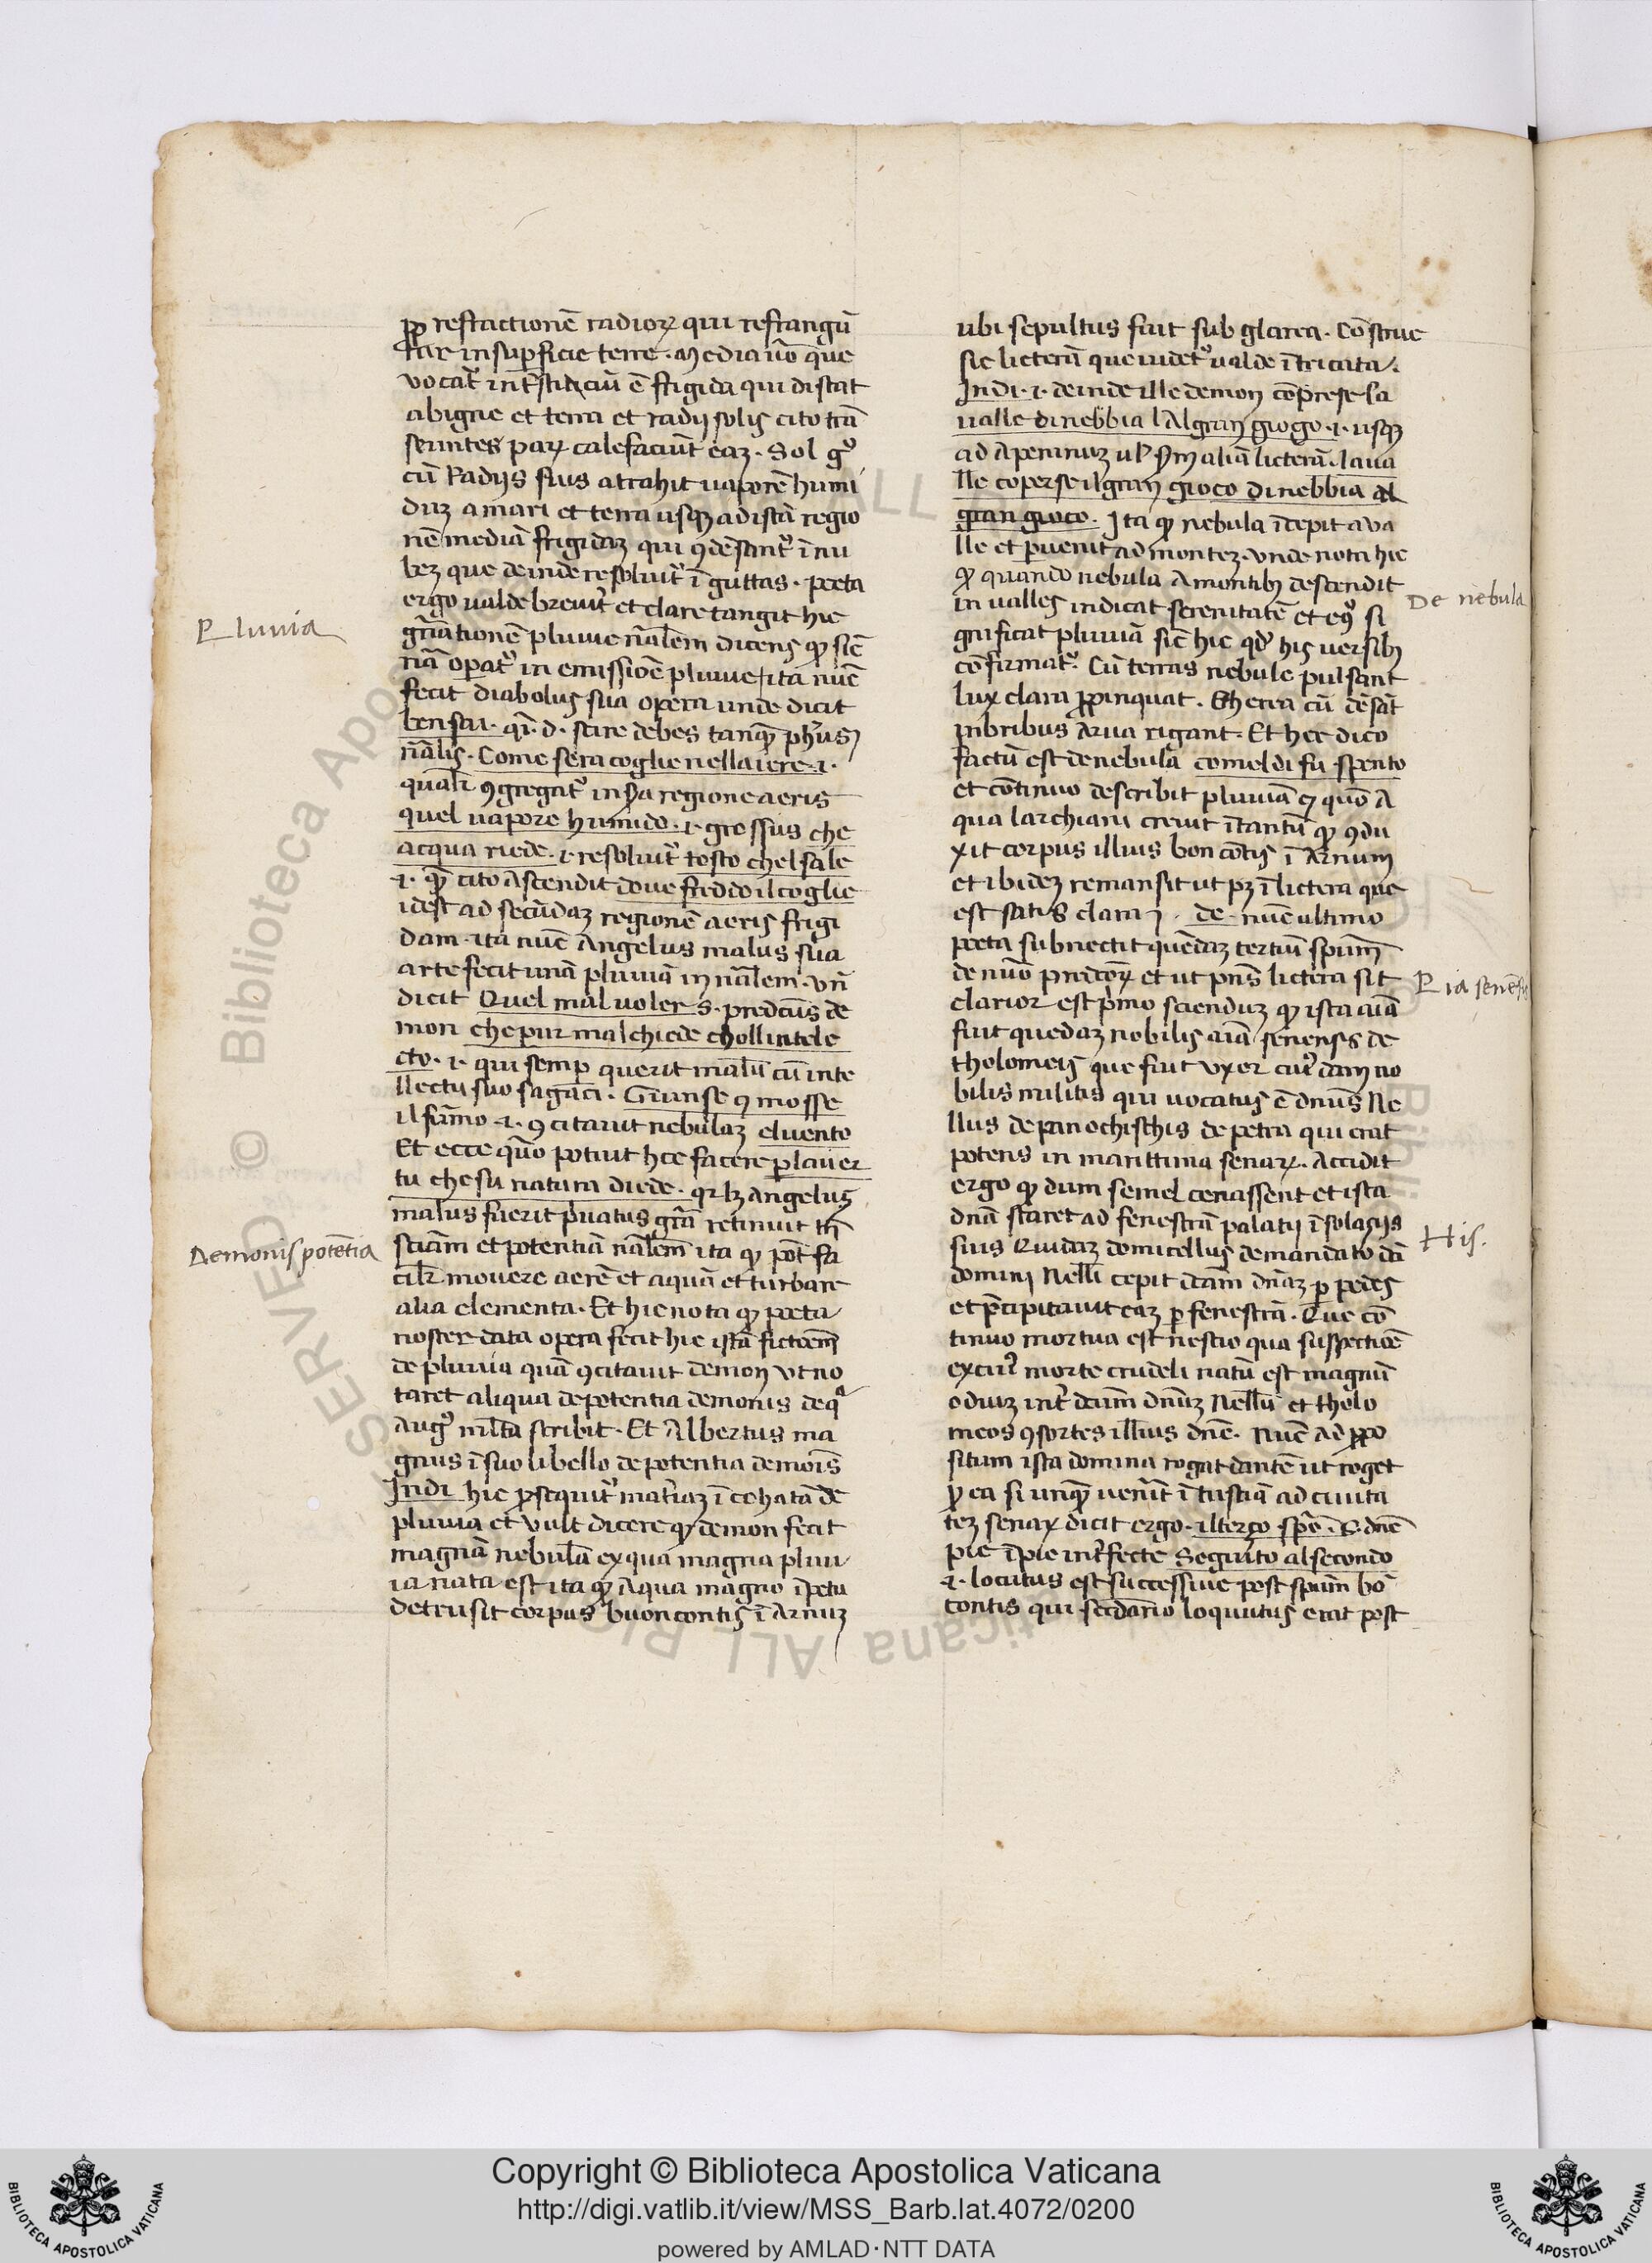 pp refractionē radioꝝ qui refrangū
tur in superficie terre. Media uō que
vocat̄ int̄sticiū ē frigida qui distat
ab igne et terra et radij solis cito trā
seuntes paꝝ calefaciūt eaz. Sol gͦ
cū Radijs suis atrahit uaporē humi
duz a mari et terra usqꝫ ad istā regio
nē mediā frigidaz qui ꝯdēsant̉ ī nu
bez que deinde resoluit̉ ī guttas. poeta
ergo ualde breuit̉ et clare tangit hic
gn̄ationē pluuie nālem dicens ꝙ sic̄
nā opat̉ in emissiōe pluuie / ita nūc
fecit diabolus sua opera unde dicit
ben sai. qi. d. scire debes tanꝙ ph̄us
nālis. Come sera coglie nellaiere .i.
qualr̄ ꝯgregat̉ in 2a regione aeris
quel uapore humido .i. grossus che
acqua riede .i. resoluit̉ tosto chel sale
.i. ꝙ cito ascendit doue freddo il coglie
idest ad secūdaz regionē aeris frigi
dam. ita nūc Angelus malus sua
arte fecit unā pluuiā innālem. Vn̄
dicit Quel mal uoler s. predcūs de
mon che pur mal chiede choll intele
cto .i. qui semp querit malū cū inte
llectu suo sagaci. Giunse ꝯ mosse
il fūmo .i. ꝯcitauit nebulaz el uento
Et ecce quō potuit hec facere p la uer
tu che su natura diede. qr lꝫ angelus
malus fuerit pͥuatus grā retinuit tn̄
sciām et potentiā nālem ita ꝙ pōt fa
cilr̄ mouere aerē et aquā et turbare
alia elementa. Et hic nota ꝙ poeta
noster data opera fecit hic istā fictōem
de pluuia quā ꝯcitauit demon ut no
taret aliqua de potentia demonis de qͣ
Augͦ mlta scribit. Et Albertus ma
gnus ī suo libello de potentia demoīs
Indi hic ꝓsequit̉ mat̉iaz īcohatā de
pluuia et vult dicere ꝙ demon fecit
magnā nebulā ex qua magna pluu
ia nata est ita ꝙ Aqua magno īpetu
detrusit corpus buoncontis ī Arnuz
Pluuia
Demonis potētia
ubi sepultus fuit sub glarea. Cōstrue
sic licterā que uidet̉ ualde ītricata.
Indi .i. deinde ille demon cōprese la
ualle di nebbia l Al gran giogo .i. usqꝫ
ad Apeninuz ul' 2m aliā licterā. la ua
lle coperse il gran gioco di nebbia al
gran gioco. Ita ꝙ nebula īcepit a va
lle et puenit ad montez. Vnde nota hic
ꝙ quando nebula A montibꝫ descendit
in valles indicat serenitatē et eͦꝯ si
gnificat pluuiā sic̄ hic qd his uersibꝫ
cōfirmat̉. Cū terras nebule pulsant
lux clara ꝓpinquat. Etherea cū dēsāt
inbribus Arua rigant. Et hec dico
factū est de nebula comel di fu spento
et cōtinuo describit pluuiā ꝫ quō A
qua larchiani creuit ītantū ꝙ ꝯdu
xit corpus illius boncōtis ī Arnum
et ibidez remansit ut pꝫ ī lictera que
est satis clara. De nūc ultimo
poeta subnectit quēdaz tertiū spūm
de nūo predcōꝝ et ut pn̄s lictera sit
clarior est pͥmo sciendum ꝙ ista aīa
fuit quedaz nobilis aīa senensis de
tholomeis que fuit uxor cuỉdam no
bilis militis qui uocatus ē dn̄us Ne
llus de panochischis de petra qui erat
potens in marittima senaꝝ. Accidit
ergo ꝙ dum semel cenassent et ista
dn̄a staret ad fenestrā palatij ī solacijs
suis Quidaz domicellus de mandato dci
domini Nelli cepit dcām dn̄az p pedes
et pͥcipitauit eaz p fenestrā. Que cō
tinuo mortua est nescio qua suspectiōe
ex cuỉ morte crudeli natū est magnū
odiuz int̉ dcūm dn̄uz Nellū et tholo
meos ꝯsortes illius dn̄e. Nūc ad ꝓpo
situm ista domina rogat dantē ut roget
ꝓ ea si unꝙ uenit̉ ī tusciā ad ciuita
tez senaꝝ dicit ergo. il terço spō .s. dn̄e
pie īpie int̉fecte Seguito al secondo
.i. locutus est successiue post spūm bō
contis qui secdario loquutus erat post
De nebula
Pia senēsis
His.
Copyright © Biblioteca Apostolica Vaticana
http://digi.vatlib.it/view/MSS_Barb.lat.4072/0200
powered by AMLAD·NTT DATA